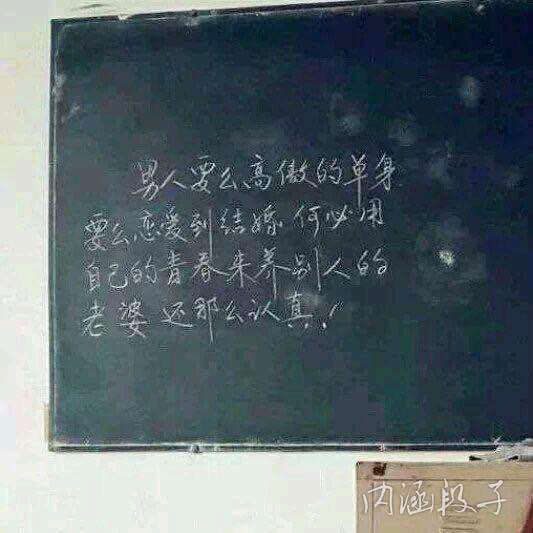 男人要么高傲的单身
要么恋爱到结婚何必用
自己的青春来养别人的
老婆还那么认真!
内涵段子